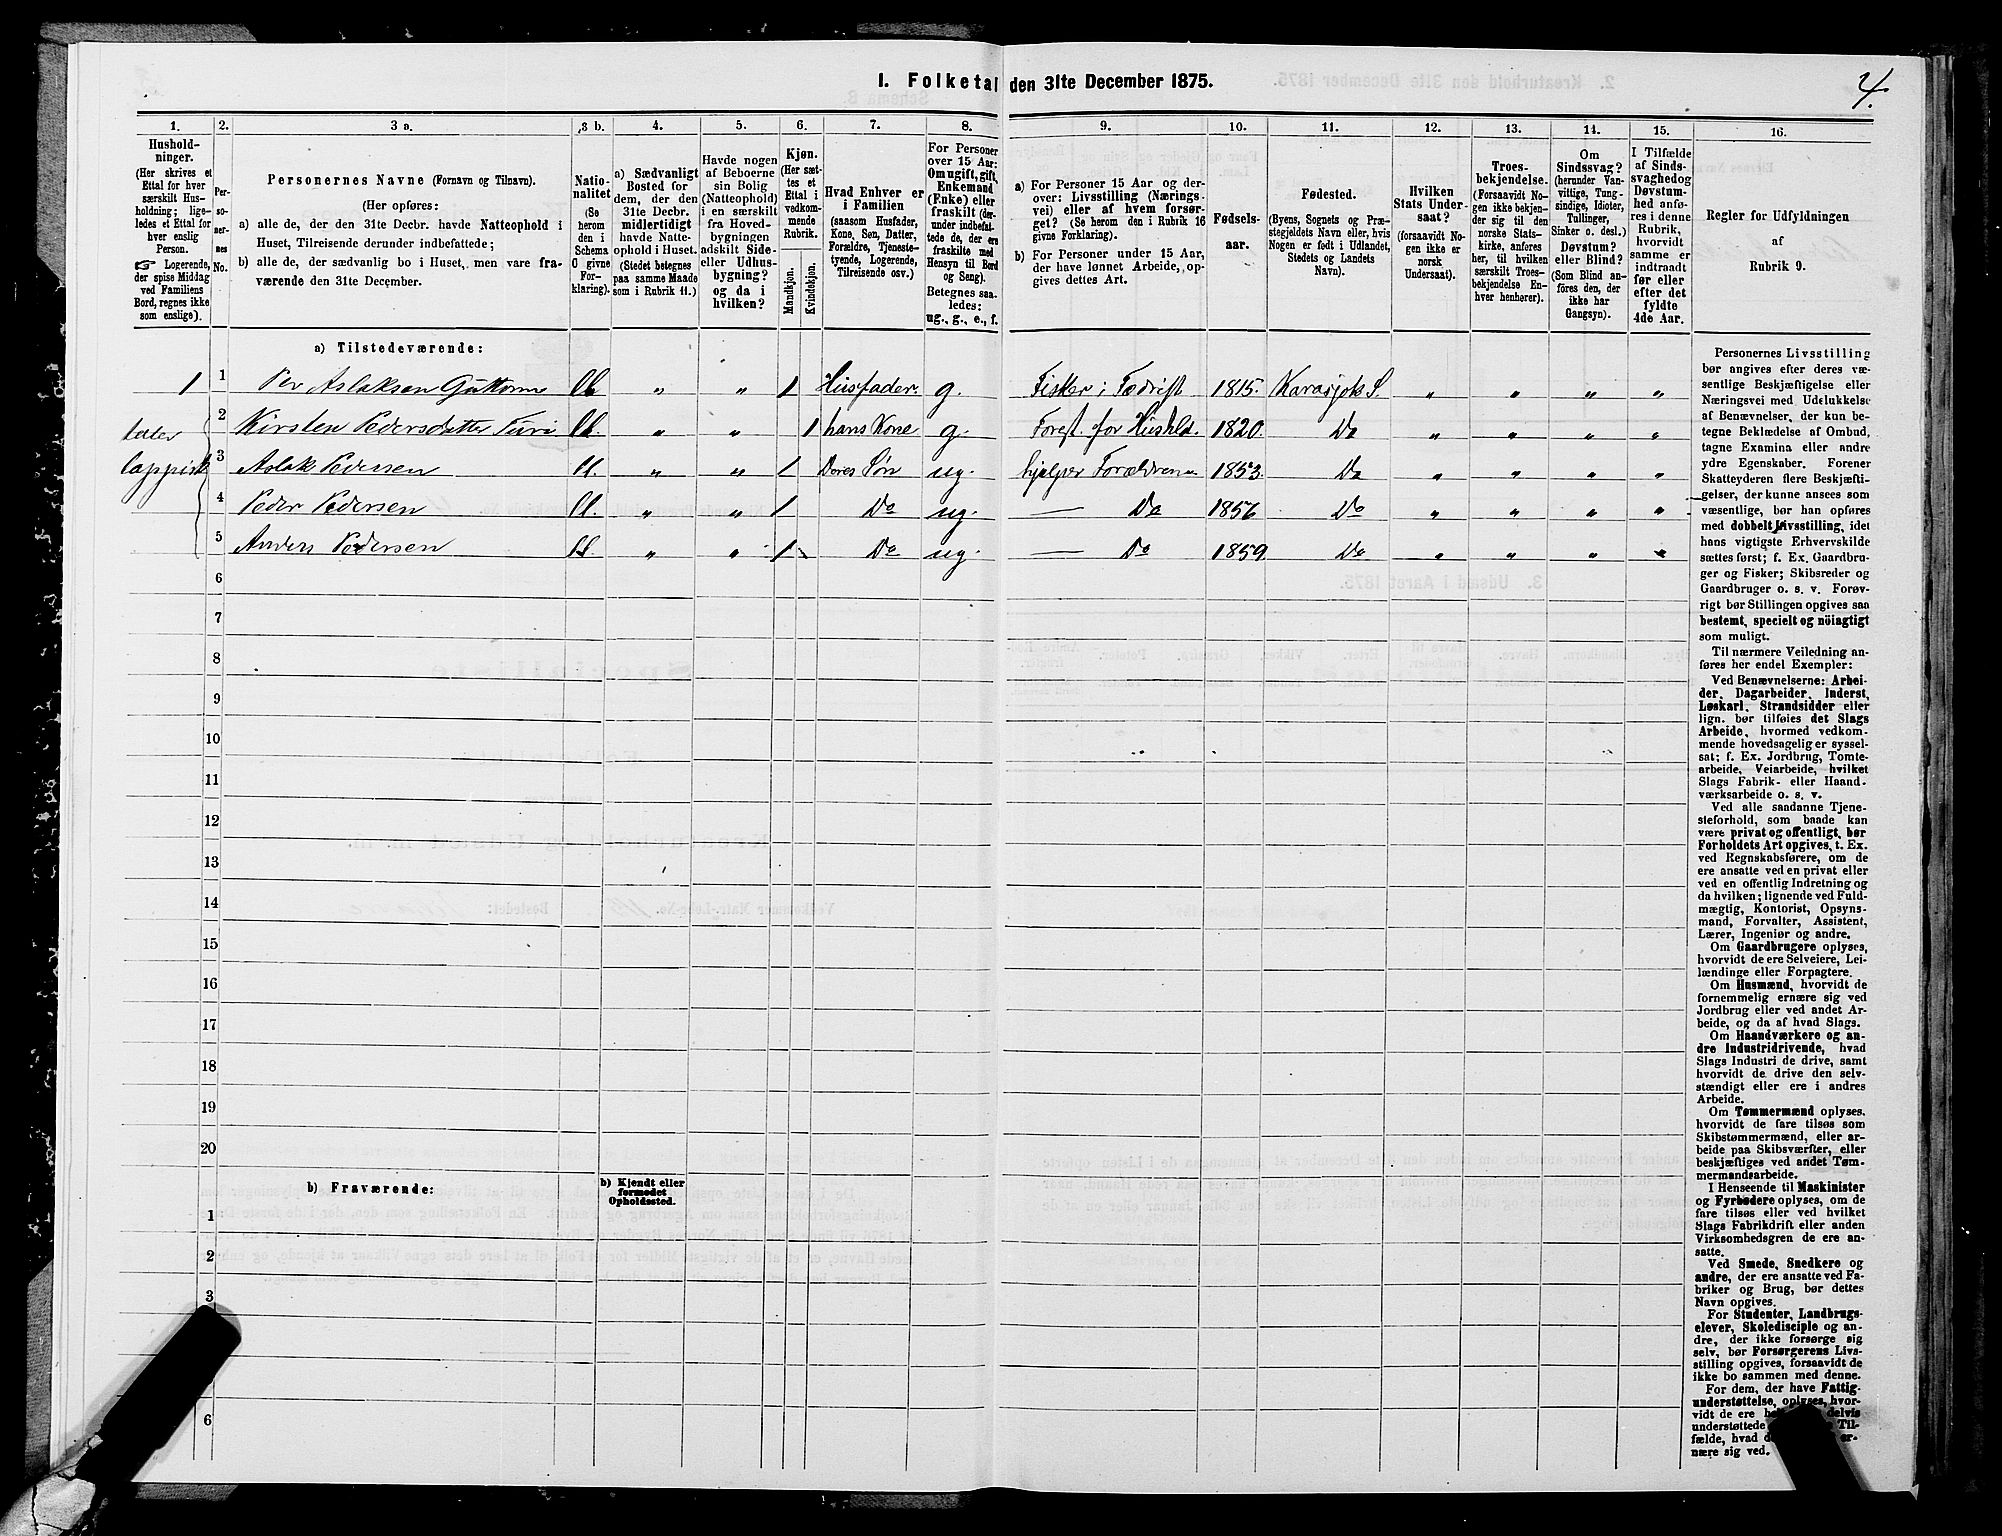 1. Folketal den 31te December 1875.
4.
1.
2.
3 a.
3 b.
4.
5.
6.
7.
8.
9.
10.
11.
12.
13.
14.
15.
16.
Hushold-
ninger.
(Her skrives et
Ettal for hver
særskilt Hus-
holdning; lige-
ledes et Ettal for
hver enslig
Person.
☞ Logerende,
der spise Middag
ved Familiens
Bord, regnes ikke
som enslige).
Per-
so-
ner-
nes
No.
Personernes Navne (Fornavn og Tilnavn).
(Her opføres:
a) alle de, der den 31te Decbr. havde Natteophold i
Huset, Tilreisende derunder indbefattede;
b) alle de, der sædvanlig bo i Huset, men vare fra-
værende den 31te December.
Natio-
nalitet
(Se
herom
den i
Schema
O givne
For-
klaring).
a) Sædvanligt
Bosted for
dem, der den
31te Decbr.
midlertidigt
havde Natte-
ophold i Huset.
(Stedet betegnes
paa samme Maade
som i Rubrik 11.)
Havde nogen
af Beboerne
sin Bolig
(Natteophold)
i en særskilt
fra Hoved-
bygningen
adskilt Side-
eller Udhus-
bygning?
og da i
hvilken?
Kjøn.
(Her sæt-
tes et
Ettal i
vedkom-
mende
Rubrik.
Mandkjøn.
Kvindekjøn.
Hvad Enhver er
i Familien
(saasom Husfader,
Kone, Søn, Datter,
Forældre, Tjeneste-
tyende, Logerende,
Tilreisende osv.)
For Personer
over 15 Aar:
Om ugift, gift,
Enkemand
(Enke) eller
fraskilt (der-
under indbefat-
tede de, der ere
fraskilte med
Hensyn til Bord
og Seng).
Betegnes saa-
ledes:
ug., g., e., f.
a) For Personer 15 Aar og der-
over: Livsstilling (Nærings-
vei) eller af hvem forsør-
get? (Se herom den i Rubrik 16
givne Forklaring).
b) For Personer under 15 Aar,
der have lønnet Arbeide, op-
gives dettes Art.
Fødsels-
aar.
Fødested.
(Byens, Sognets og Præ-
stegjeldets Navn eller, hvis
Nogen er født i Udlandet,
Stedets og Landets
Navn).
Hvilken
Stats Under-
saat?
(forsaavidt No-
gen ikke er
norsk
Undersaat).
Troes-
bekjendelse.
(Forsaavidt No-
gen ikke bekjen-
der sig til den
norske Stats-
kirke, anføres
her, til hvilken
særskilt Troes-
bekjendelse En-
hver henhører).
Om
Sindssvag?
(herunder Van-
vittige, Tung-
sindige, Idioter,
Tullinger,
Sinker o. desl.)
Døvstum?
eller Blind?
(Som Blind an-
føres den, der
ikke har
Gangsyn).
I Tilfælde
af Sinds-
svaghed og
Døvstum-
hed anfø-
res i denne
Rubrik,
hvorvidt
samme er
indtraadt
før eller
efter det
fyldte
4de Aar.
Regler for Udfyldningen
af
Rubrik 9.
a) Tilstedeværende:
1 1 Per Aslaksen Guttorm " " 1 Husfader. g. Fisker i Fædrift 1815. Karasjok S. " " " "
taler 2 Kirsten Pedersdatter Turi " " 1 hans Kone g. Forest. for Hushld. 1820. Do " " " "
lappisk 3 Aslak Pedersen " " 1 Deres Søn ug. hjelper Forældrene 1853. Do " " " "
4 Peder Pedersen " " 1 Do ug. — Do 1856 Do " " " "
5 Anders Pedersen " " 1 Do ug. — Do 1859. Do " " " "
6
7
8
9
10
11
12
13
14
15
16
17
18
19
20
b) Fraværende:
b) Kjendt eller
formodet
Opholdssted.
1
2
3
6
Personernes Livsstilling
bør angives efter deres væ-
sentlige Beskjæftigelse eller
Næringsvei med Udelukkelse
af Benævnelser, der kun be-
tegne Beklædelse af Ombud,
tagne Examina eller andre
ydre Egenskaber. Forener
Skatteyderen flere Beskjæfti-
gelser, der kunne ansees som
væsentlige, bør han opføres
med dobbelt Livsstilling, idet
hans vigtigste Erhvervskilde
sættes først; f. Ex. Gaardbru-
ger og Fisker; Skibsreder og
Gaardbruger o. s. v. Forøv-
rigt bør Stillingen opgives saa
bestemt, specielt og nöiagtigt
som muligt.
Til nærmere Veiledning an-
føres her endel Exempler:
Ved Benævnelserne: Arbei-
der, Dagarbeider, Inderst,
Løskarl, Strandsidder eller
lign. bør tilføies det Slags
Arbeide, hvormed vedkom-
mende hovedsagelig er syssel-
sat; f. Ex. Jordbrug, Tomte-
arbeide, Veiarbeide, hvilket
Slags Fabrik- eller Haand-
værksarbeide o. s. v.
Ved alle saadanne Tjene-
steforhold, som baade kan
være privat og offentligt, bør
Forholdets Art opgives, t. Ex.
ved Regnskabsførere, om de
ere ansatte ved en privat eller
ved en offentlig Indretning og
da hvilken; lignende ved Fuld-
mægtig, Kontorist, Opsyns-
mand, Forvalter, Assistent,
Lærer, Ingeniør og andre.
Om Gaardbrugere oplyses,
hvorvidt de ere Selveiere, Lei-
lændinge eller Forpagtere.
Om Husmænd, hvorvidt de
fornemmelig ernære sig ved
Jordbrug eller ved andet Ar-
beide, og da af hvad Slags.
Om Haandværkere og an-
dre Industridrivende, hvad
Slags Industri de drive, samt
hvorvidt de drive den selv-
stændigt eller ere i andres
Arbeide.
Om Tømmermænd oplyses,
hvorvidt de fare tilsøs som
Skibstømmermænd, eller ar-
beide paa Skibsværfter, eller
beskjæftiges ved andet Tøm-
mermandsarbeide.
I Henseende til Maskinister
og Fyrbødere oplyses, om de
fare tilsøs eller ved hvilket
Slags Fabrikdrift eller anden
Virksomhedsgren de ere an-
satte.
Ved Smede, Snedkere og
andre, der ere ansatte ved Fa-
briker og Brug, bør dettes
Navn opgives.
For Studenter, Landbrugs-
elever, Skoledisciple og an-
dre, der ikke forsørge sig
selv, bør Forsørgerens Livs-
stilling opgives, forsaavidt de
ikke bo sammen med denne.
For dem, der have Fattig-
understøttelse, oplyses, hvor-
vidt de ere delvis
understøttede Til-
fælde, hvad er-
nære sig ved.